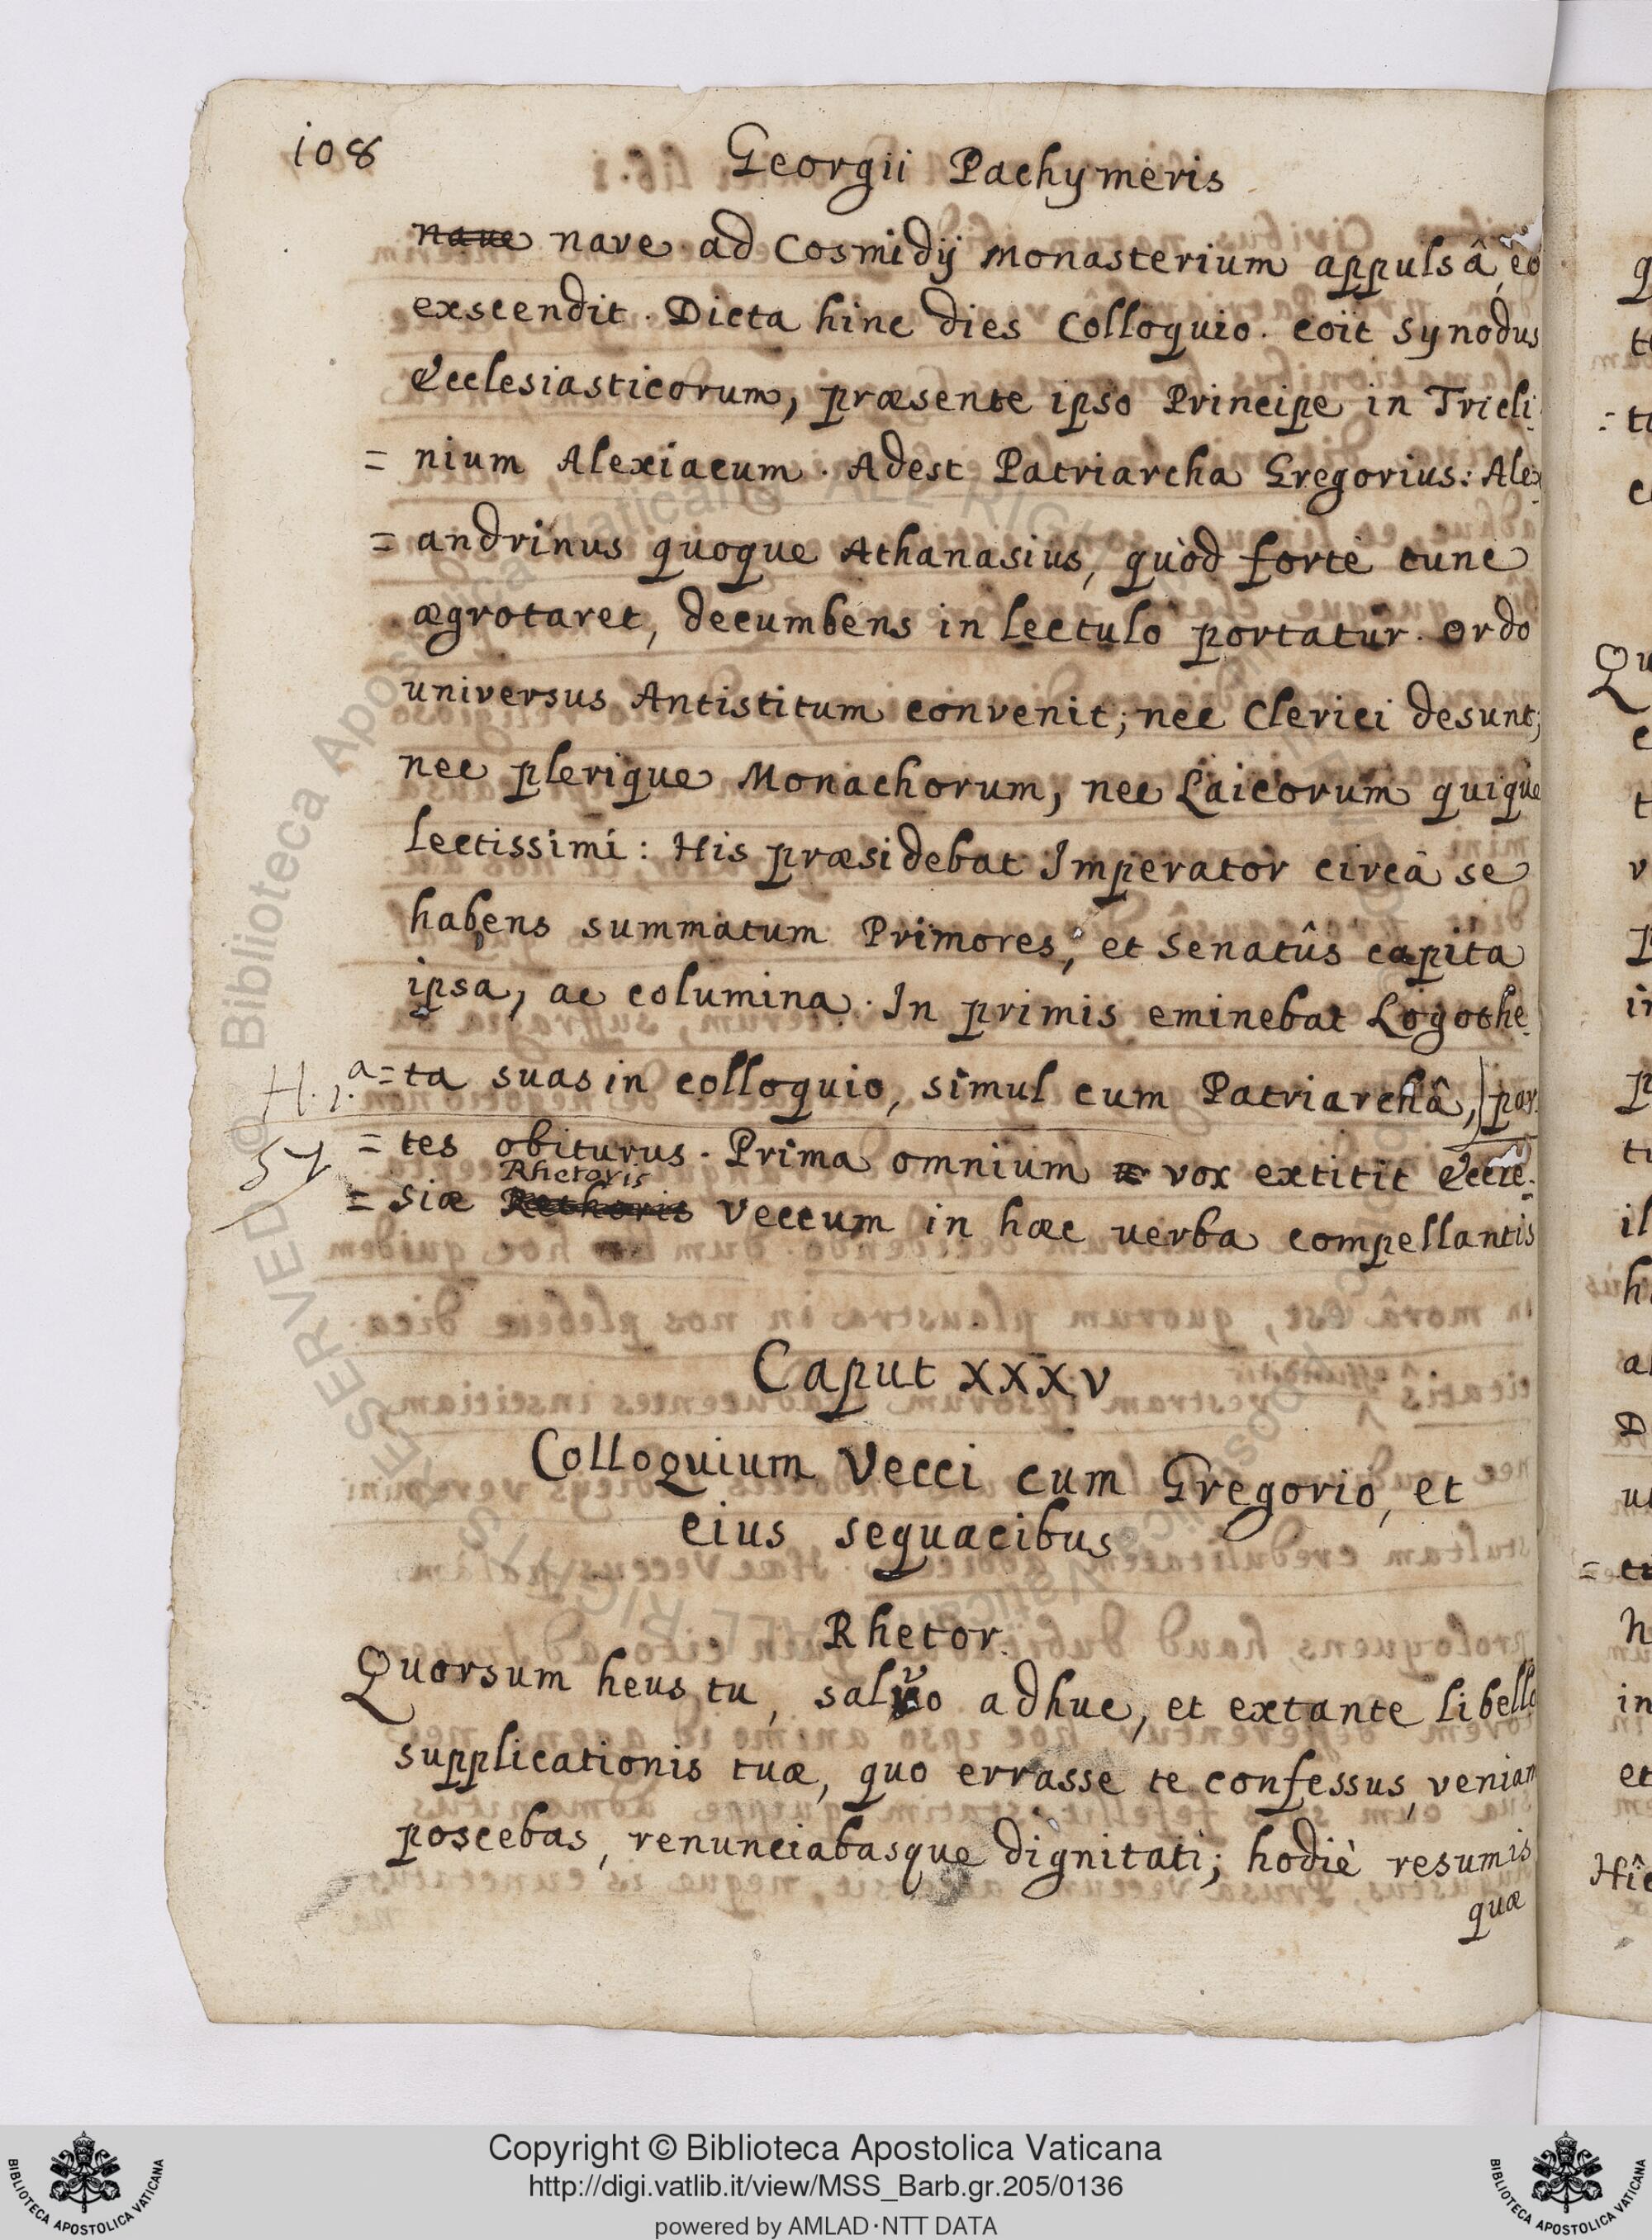 108
Georgii Pachymeris
naue nave ad Cosmidij Monasterium appulsâ, eo
exscendit. Dicta hinc dies Colloquio. coit synodus
Ecclesiasticorum, præsente ipso Principe in Tricli
= nium Alexiacum. Adest Patriarcha Gregorius: Alex
= andrinus quoque Athanasius, quòd fortè tunc
ægrotaret, decumbens in lectulo portatur. ordo
universus Antistitum convenit; nec Clerici desunt;
nec plerique Monachorum, nec Laicorum quique
lectissimi: His præsidebat Imperator circà se
habens summatum Primores, et senatûs capita
ipsa, ac columina. In primis eminebat Logothe
a = ta suas in colloquio, simul cum Patriarchâ, par
H. 1.
= tes obiturus. Prima omnium vox extitit Eccle
57
Rhetoris
= siæ Rethoris Veccum in hæc verba compellantis
Caput XXXV
Colloquium Vecci cum Gregorio, et
eius sequacibus
Rhetor.
Quorsum heus tu, salvo adhuc, et extante libello
supplicationis tuæ, quo errasse te confessus, veniam
poscebas, renunciabasque dignitati; hodiè resumis
quæ
Copyright © Biblioteca Apostolica Vaticana
http://digi.vatlib.it/view/MSS_Barb.gr.205/0136
powered by AMLAD·NTT DATA
BIBLIOTECA APOSTOLICA VATICANA
BIBLIOTECA APOSTOLICA VATICANA